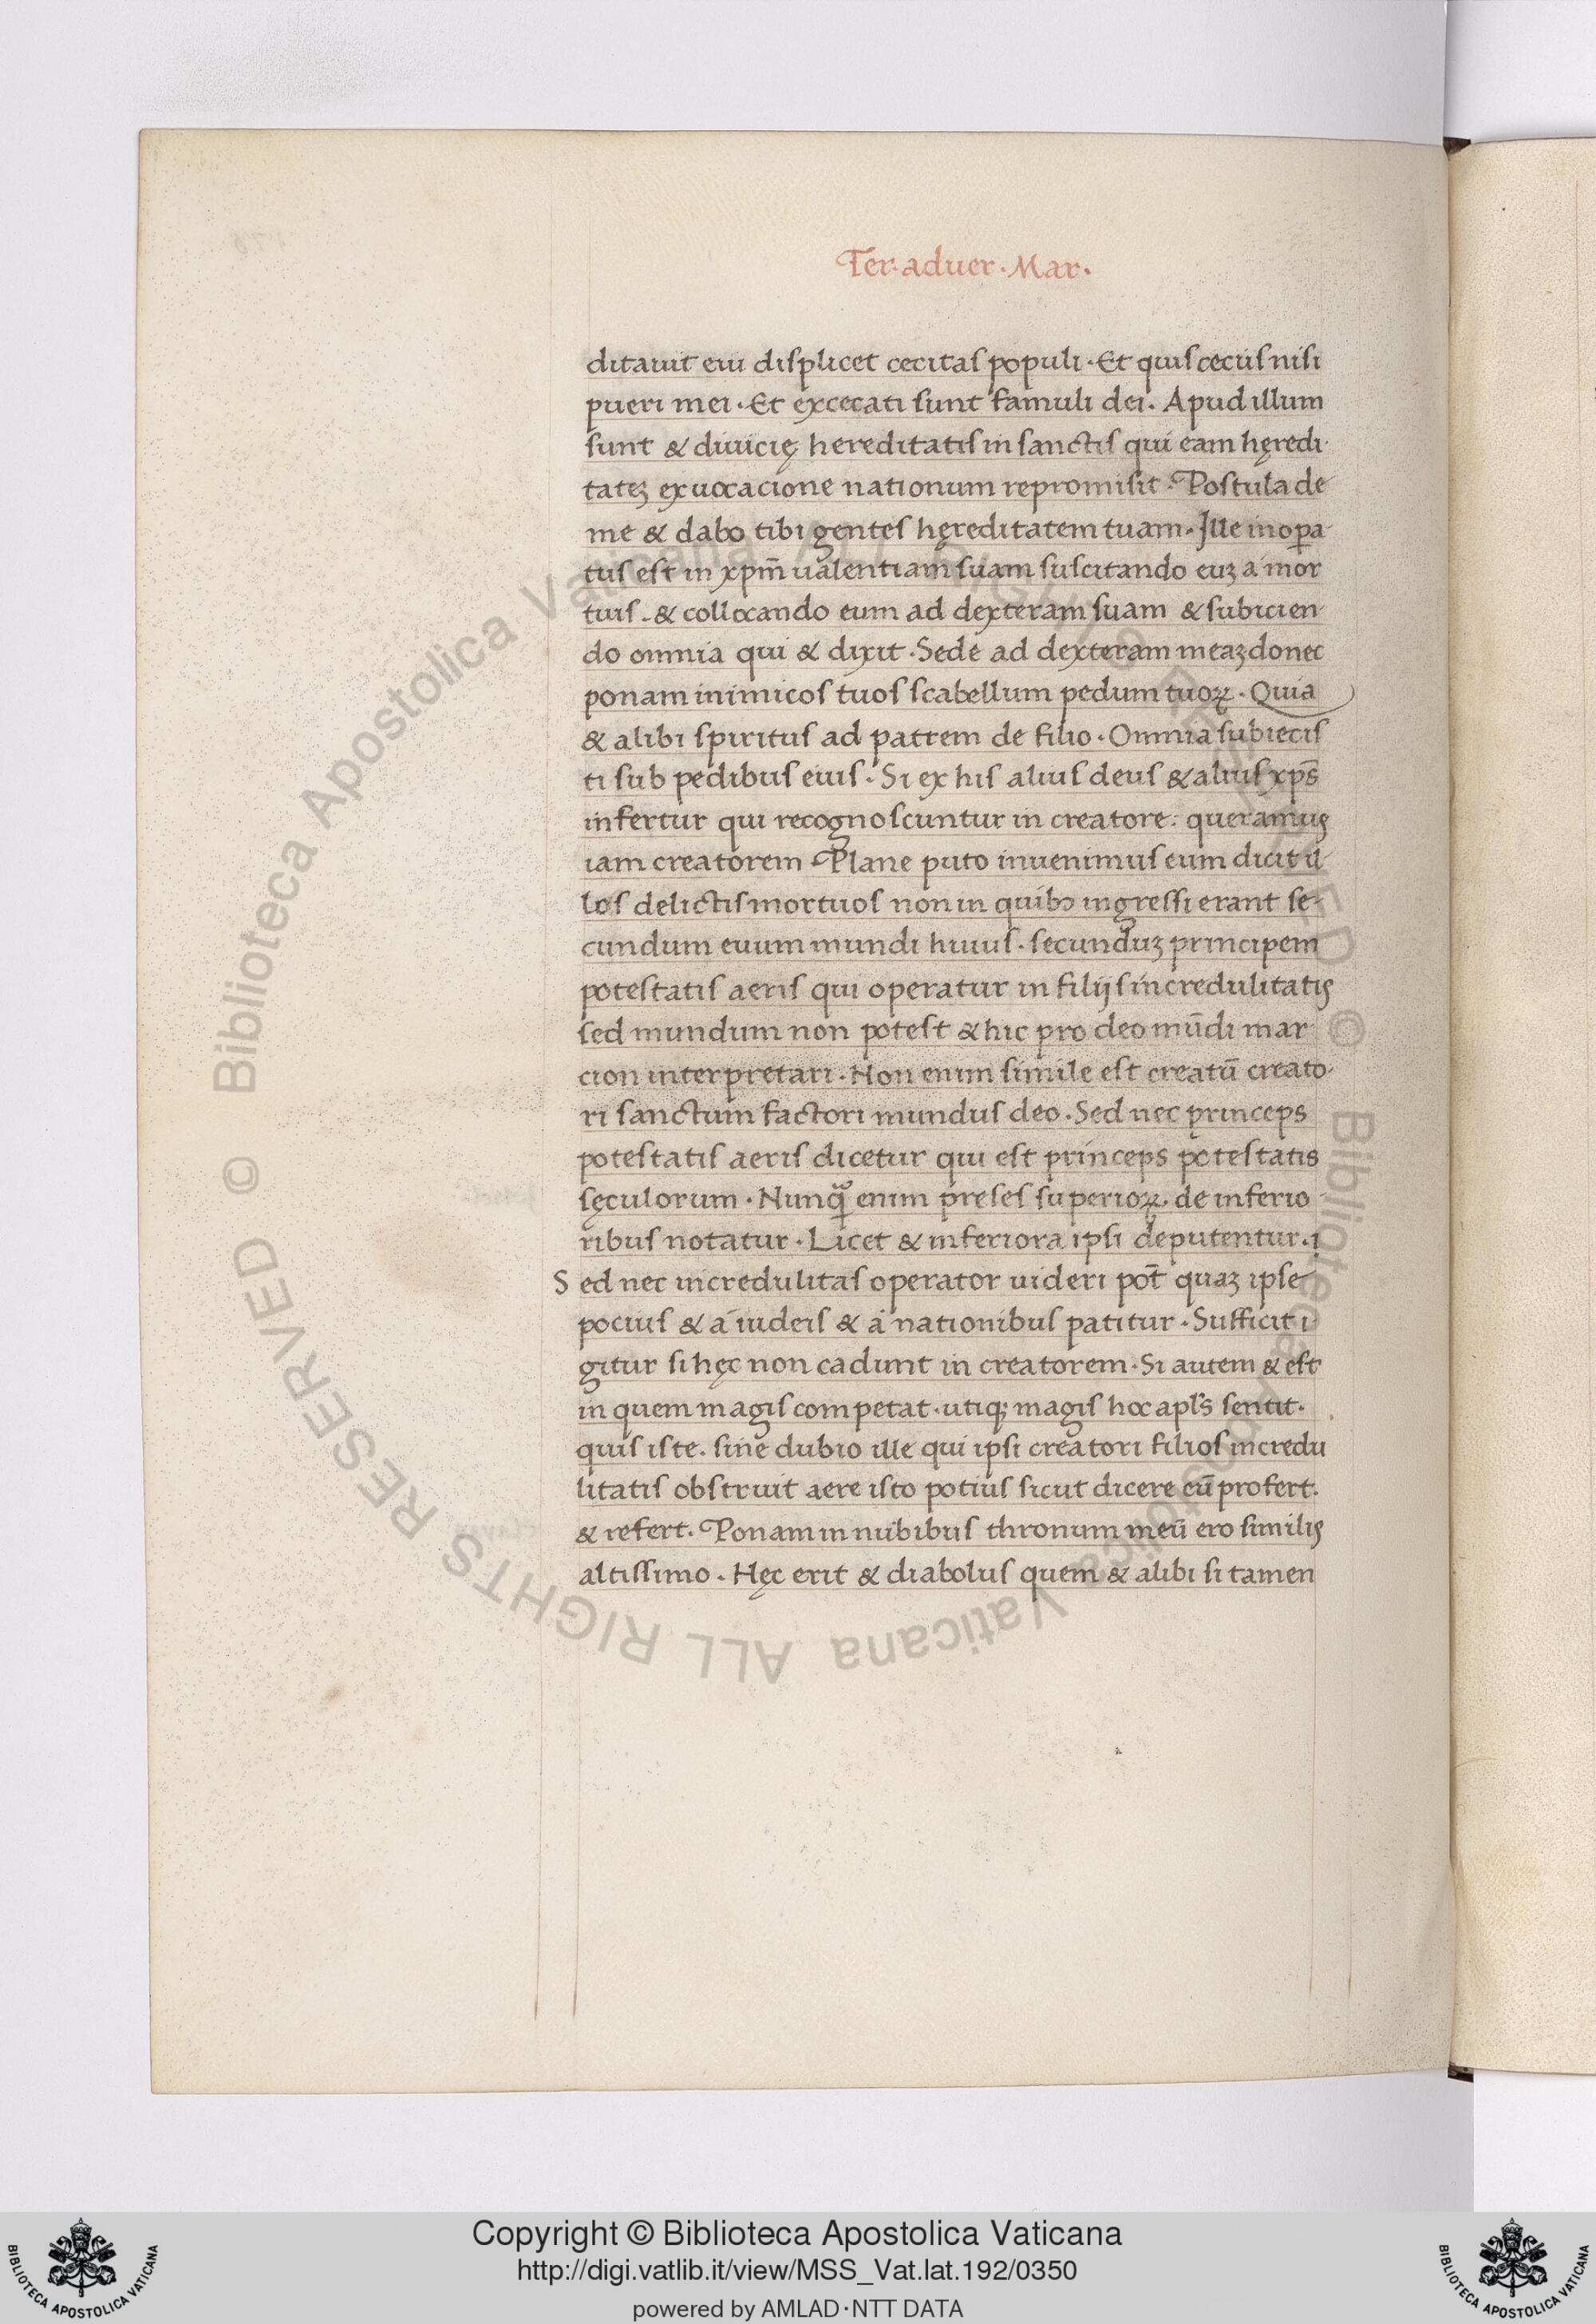 Ter. aduer. Mar.
ditauit eiu displicet cecitas populi. Et quis cecus nisi
pueri mei. Et excecati sunt famuli dei. Apud illum
sunt & diuicię hereditatis in sanctis qui eam hęredi
tateʒ ex uocacione nationum repromisit. Postula de
me & dabo tibi gentes hęreditatem tuam. Ille inopa
tus est in xpm̄ ualentiam suam suscitando euʒ a mor
tuis. & collocando eum ad dexteram suam & subicien
do omnia qui & dixit. Sede ad dexteram meaʒ donec
ponam inimicos tuos scabellum pedum tuoꝝ. Quia
& alibi spiritus ad patrem de filio. Omnia subiecis
ti sub pedibus eius. Si ex his alius deus & alius xp̄s
infertur qui recognoscuntur in creatore: queramus
iam creatorem. Plane puto inuenimus eum dicit il
los delictis mortuos non in quibꝫ ingressi erant se
cundum euum mundi huius. secunduʒ principem
potestatis aeris qui operatur in filijs incredulitatis
sed mundum non potest & hic pro deo mūdi mar
cion interpretari. Non enim simile est creatū creato
ri sanctum factori mundus deo. Sed nec princeps
potestatis aeris dicetur qui est princeps potestatis
sęculorum. Nunꝙ̃ enim preses superioꝝ de inferio
ribus notatur. Licet & inferiora ipsi deputentur. i
Sed nec incredulitas operator uideri pot̄ quaʒ ipse
pocius & a iudeis & a nationibus patitur. Sufficit i
gitur si hęc non cadunt in creatorem. Si autem & est
in quem magis competat. utiqꝫ magis hoc apl̄s sentit.
quis iste. sine dubio ille qui ipsi creatori filios incredu
litatis obstruit aere isto potius sicut dicere eū profert.
& refert. Ponam in nubibus thronum meū ero similis
altissimo. Hęc erit & diabolus quem & alibi si tamen
Biblioteca Apostolica Vaticana ALL RIGHTS RESERVED ©
Copyright © Biblioteca Apostolica Vaticana
http://digi.vatlib.it/view/MSS_Vat.lat.192/0350
powered by AMLAD·NTT DATA
BIBLIOTECA APOSTOLICA VATICANA
BIBLIOTECA APOSTOLICA VATICANA